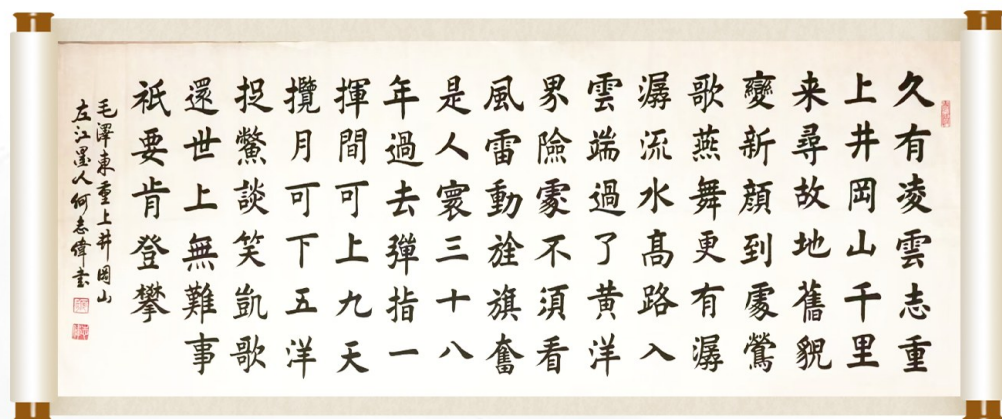 久有凌雲志重
上井岡山千里
来尋故地舊貌
變新顔到處鶯
歌燕舞更有潺
潺流水髙路入
雲端過了黄洋
界險處不須看
風雷動旌旗奮
是人寰三十八
年過去彈指一
揮間可上九天
攬月可下五洋
捉鱉談笑凱歌
還世上無難事
祇要肯登攀
毛澤東重上井岡山
左江墨人何志偉書